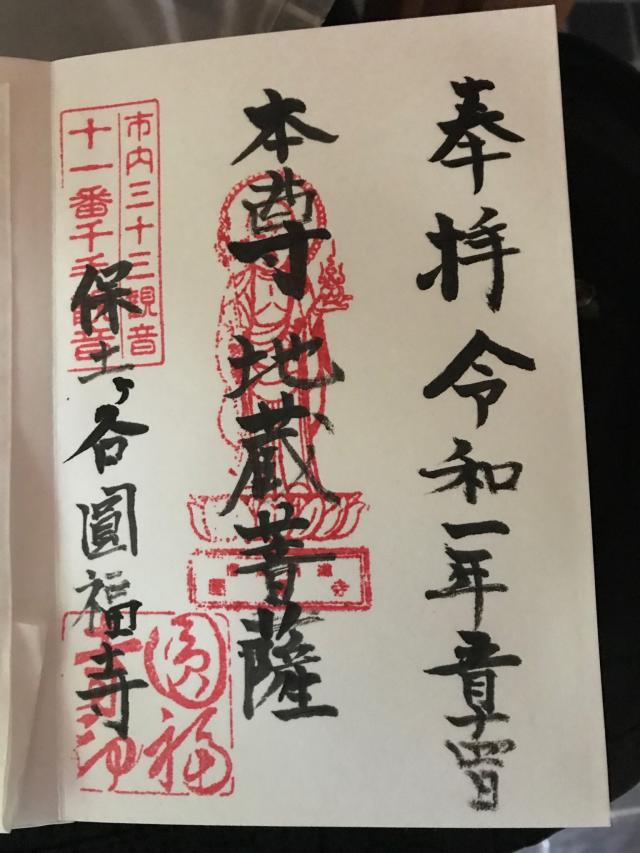 奉拝 令和一年
本尊 地蔵菩薩
市内三十三観音
十一番千手観音
保土ヶ谷圓福寺
圓福寺印